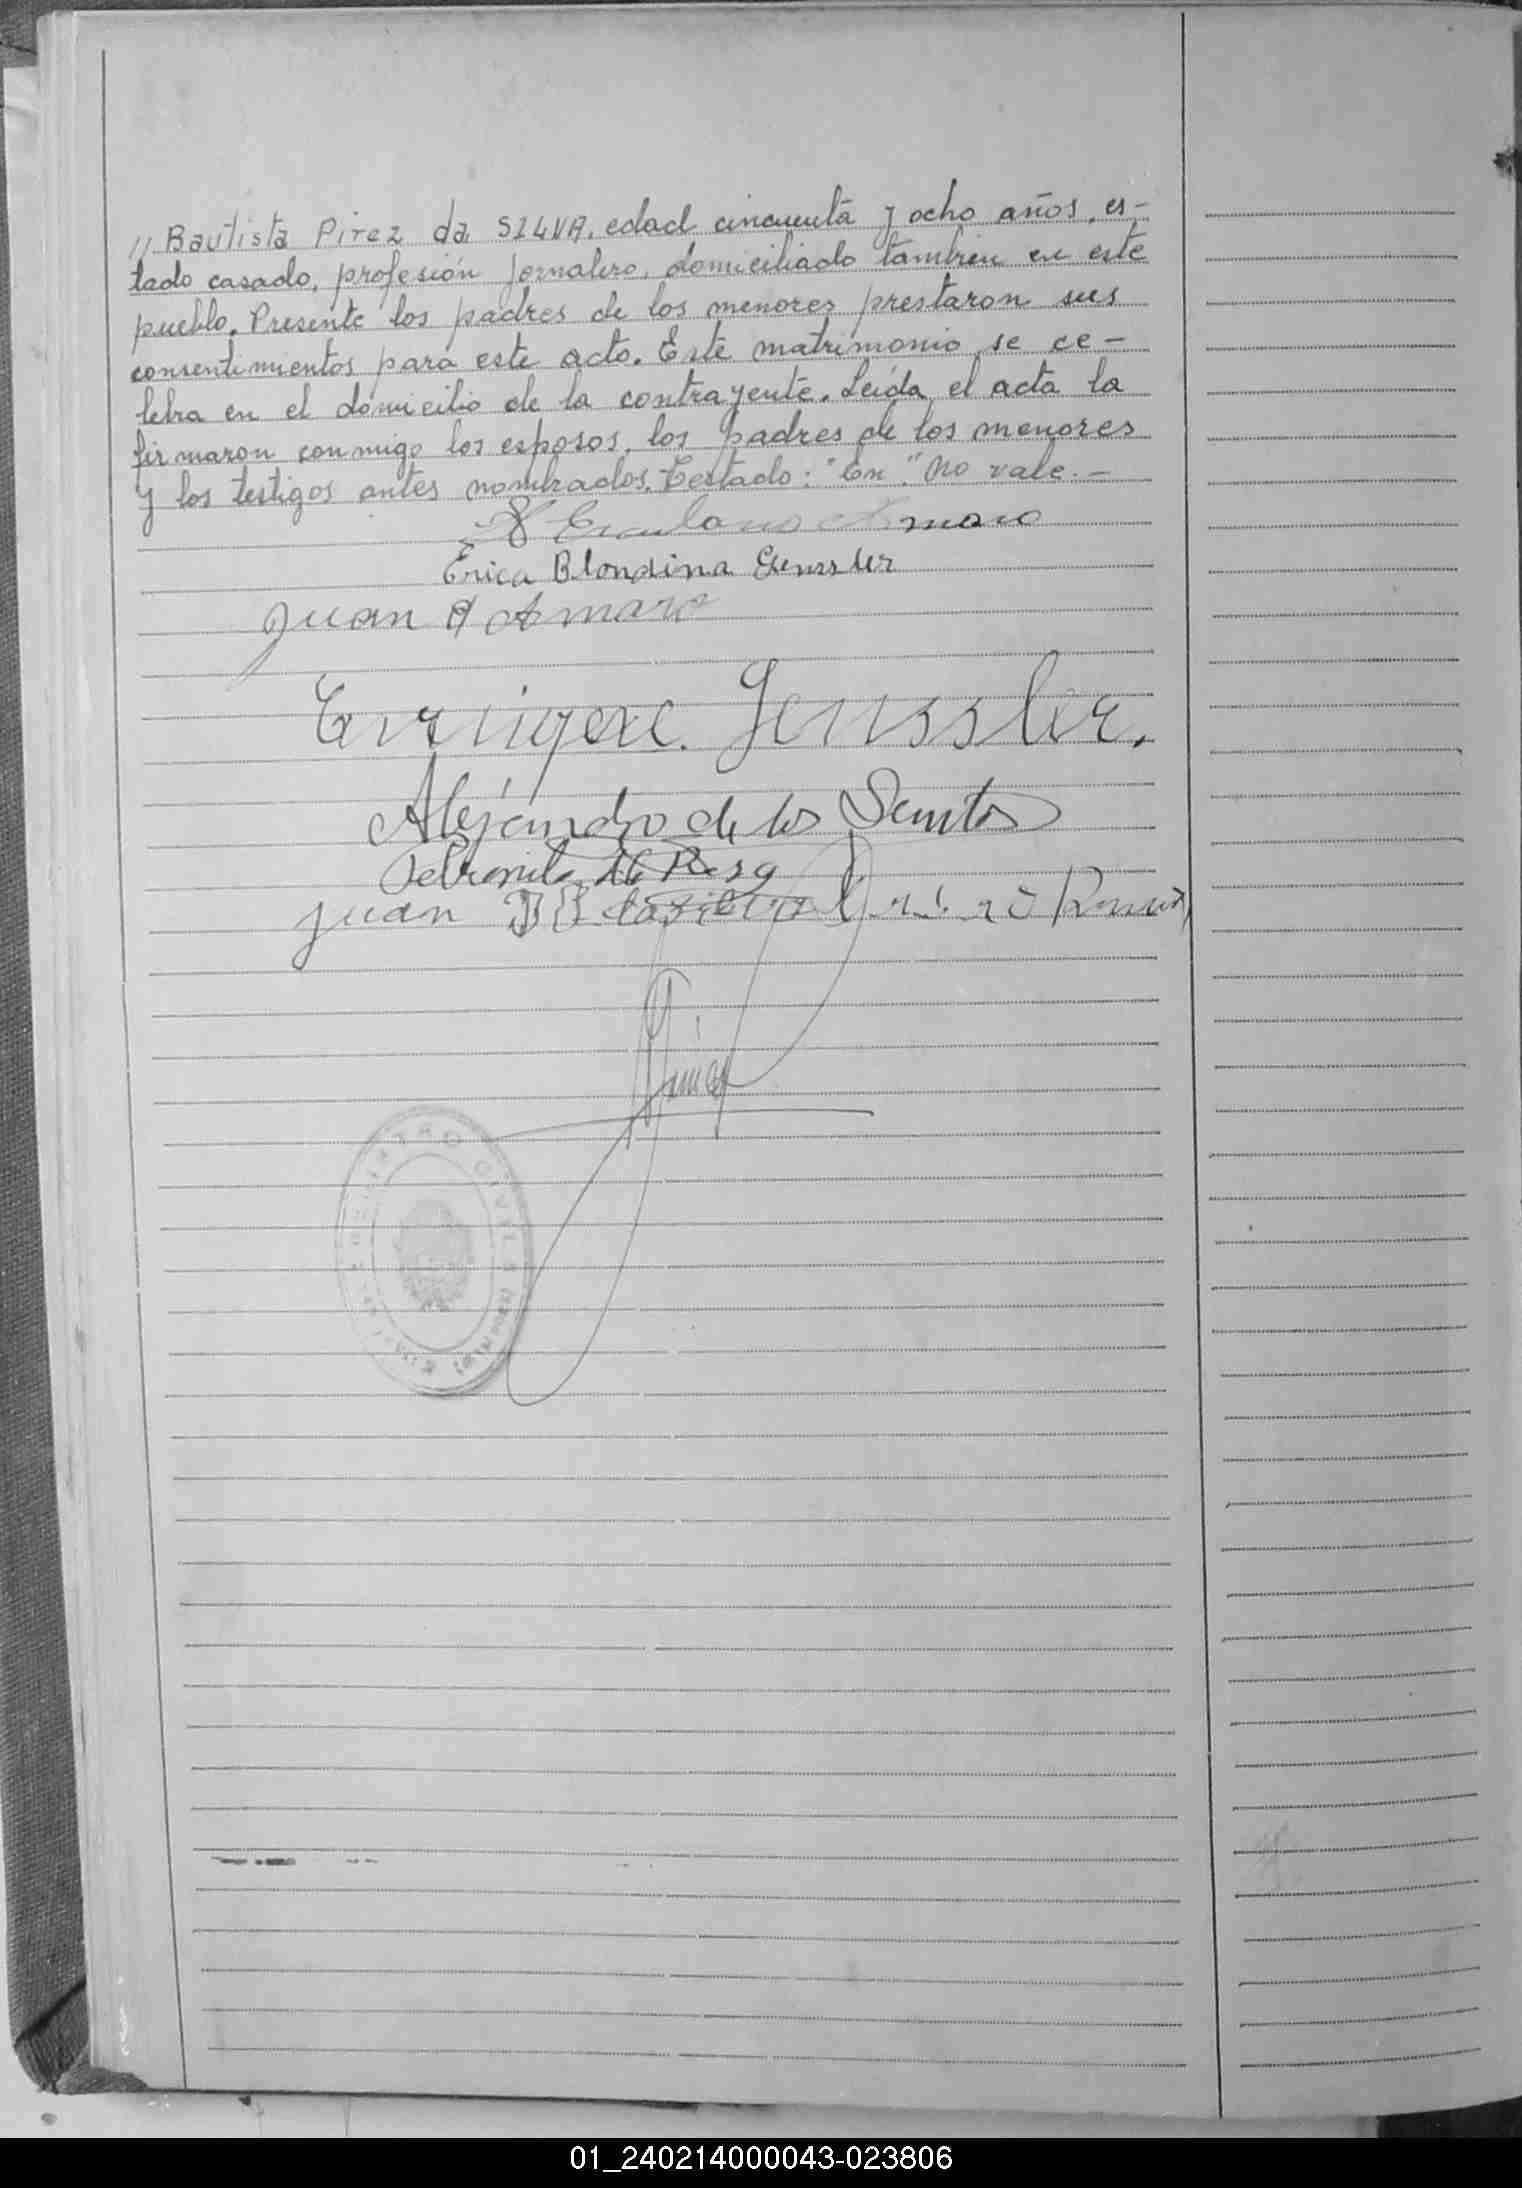 // Bautista Pirez da SILVA, edad cincuenta y ocho años, es-
tado casado, profesión jornalero, domiciliado tambien en este
pueblo. Presente los padres de los menores prestaron sus
consentimientos para este acto. Este matrimonio se ce-
lebra en el domicilio de la contrayente. Leída el acta la
firmaron conmigo los esposos, los padres de los menores
y los testigos antes nombrados. Testado: "En". No vale.-
Amaro
Erica Blondina Genssler
Juan A Amaro
Genssler.
Alejandro de los Santos
Juan
REGISTRO CIVIL
01_240214000043-023806